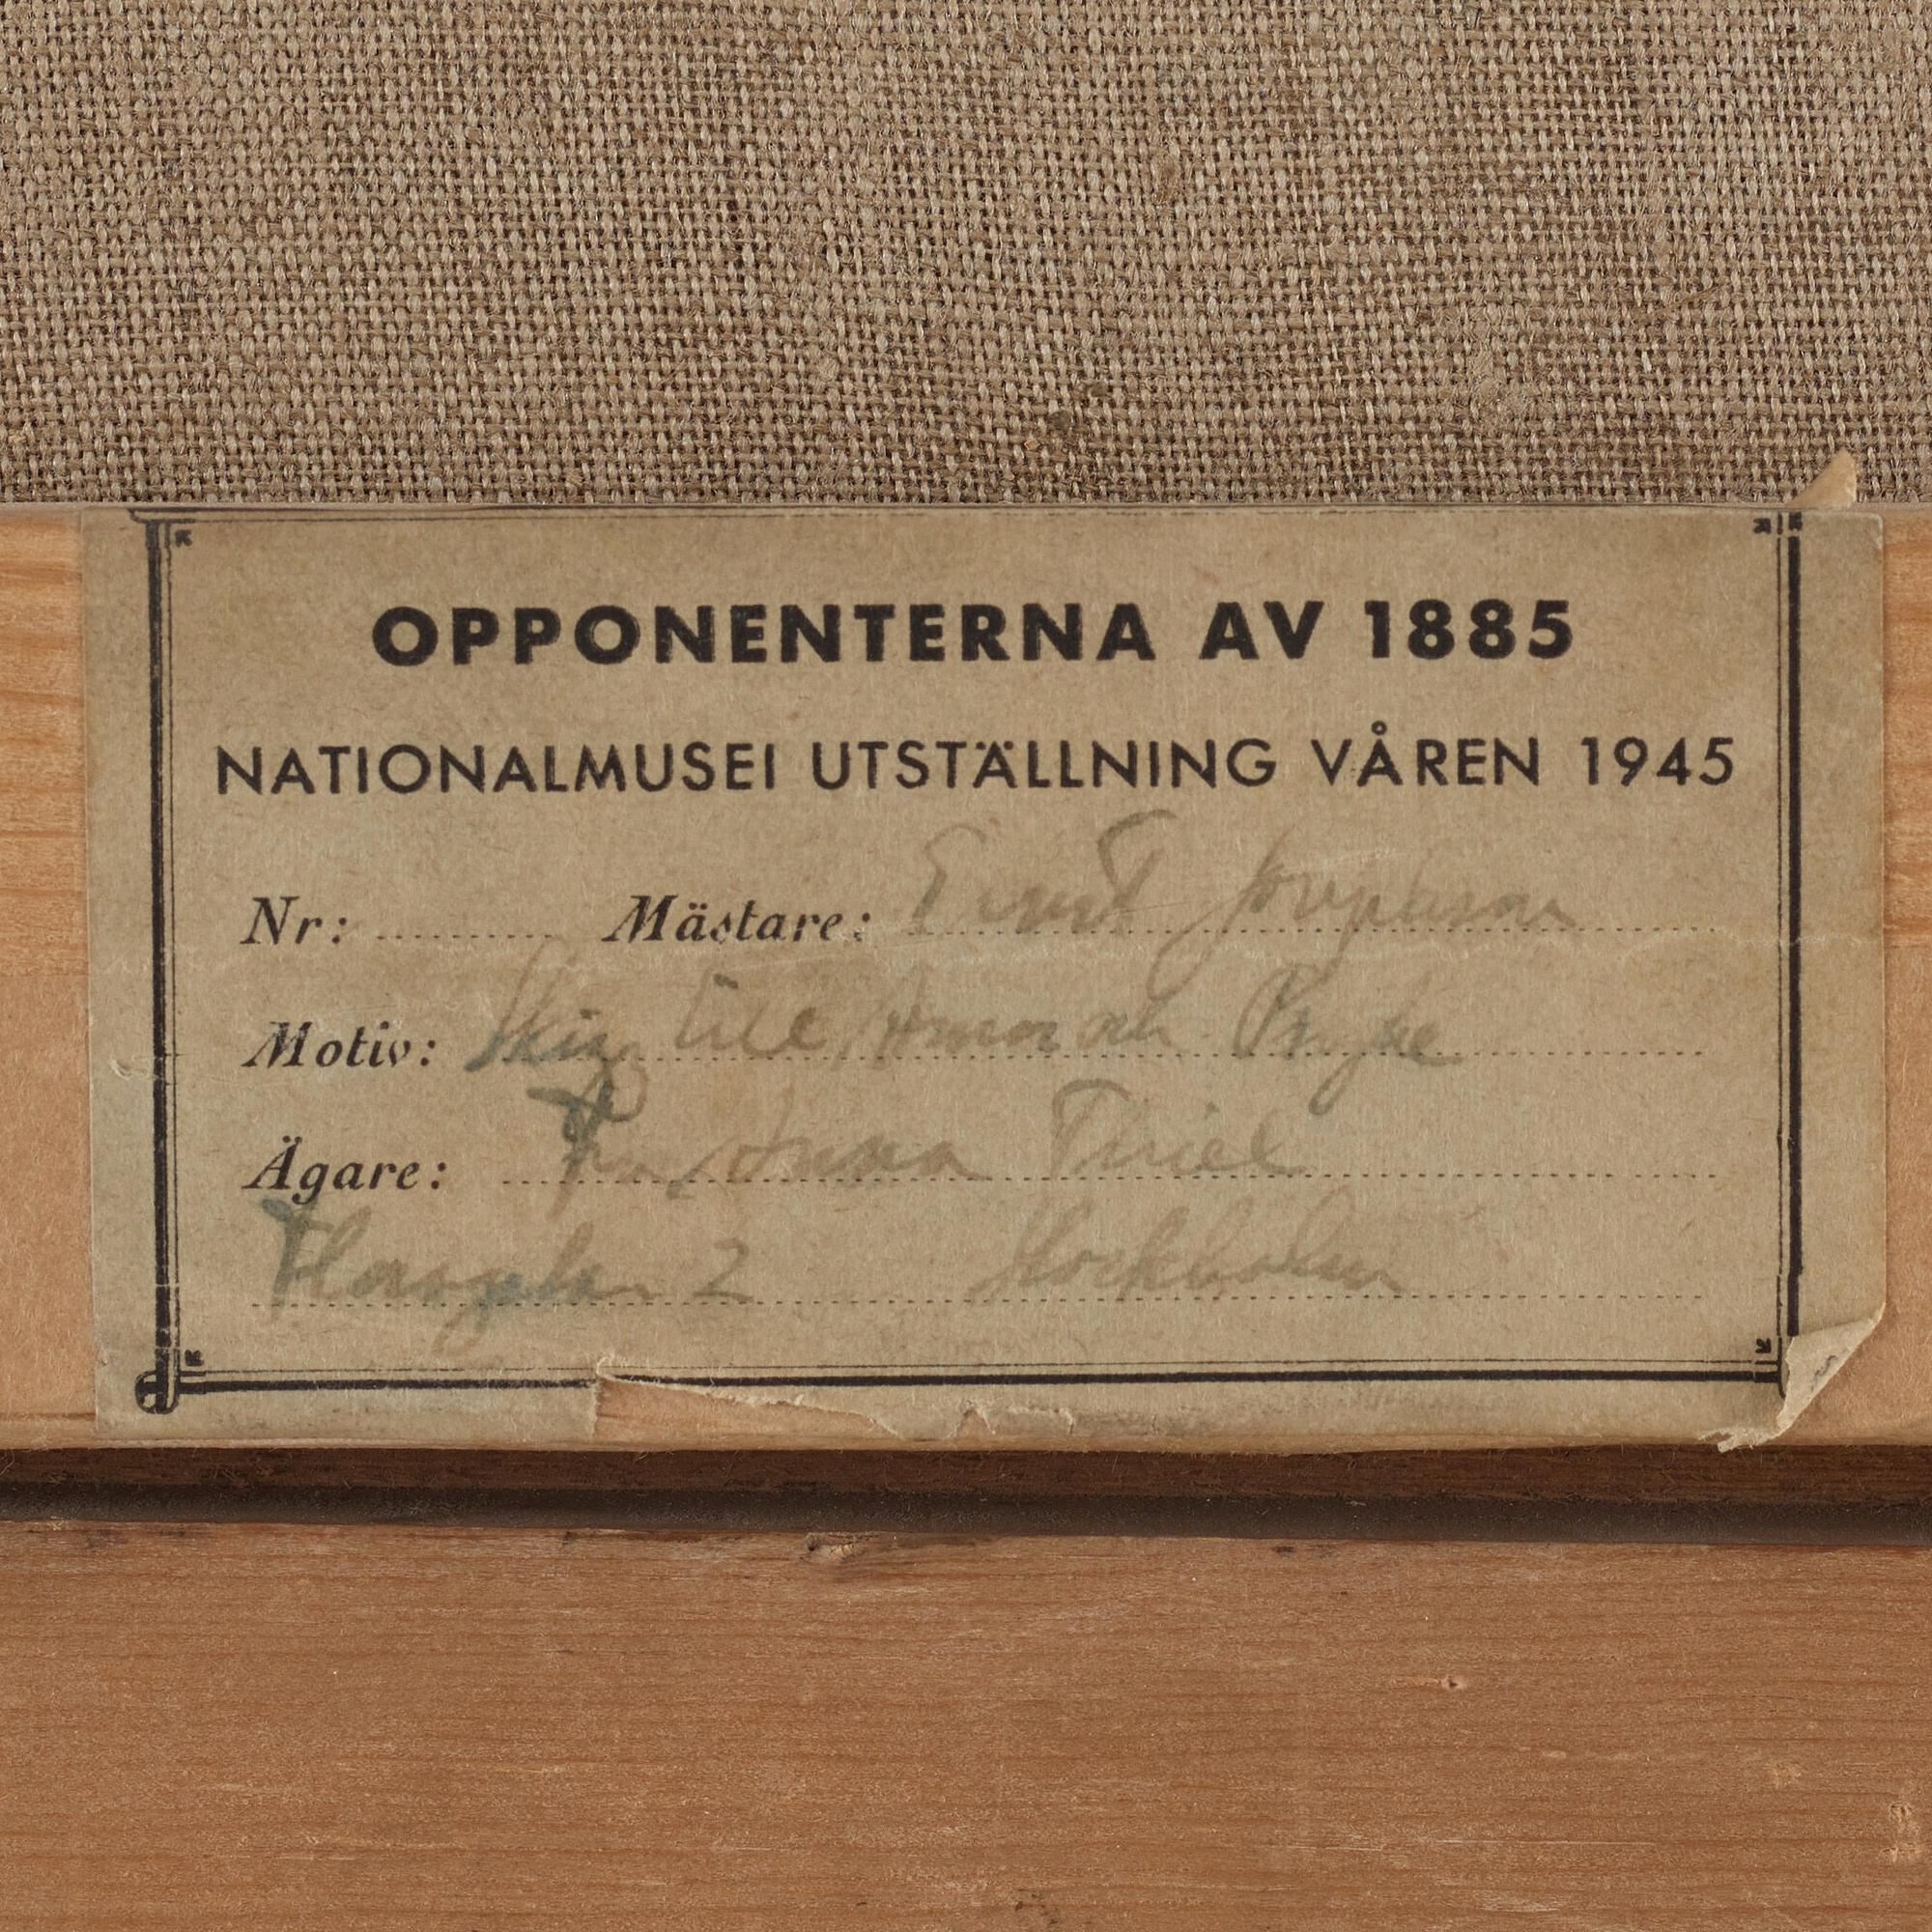 OPPONENTERNA AV 1885
NATIONALMUSEI UTSTÄLLNING VÅREN 1945
Nr: Mästare: Ernst Josephson
Motiv: Skiz till Amor och Psyke
Ägare: Fru Anna Thiel
2 Stockholm